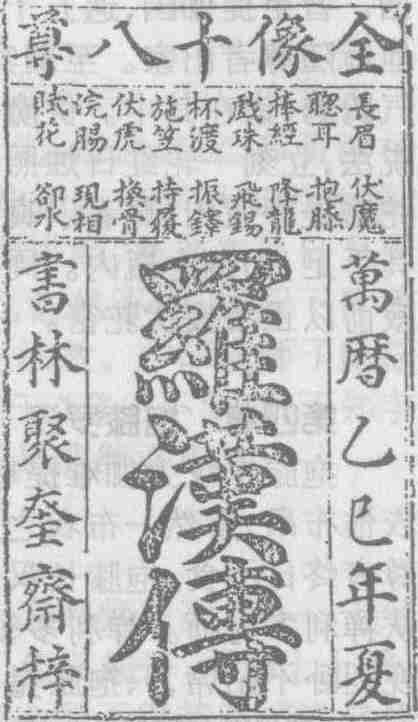 全像十八尊
長眉 伏魔
聦耳 抱膝
捧經 降龍
戲珠 飛錫
杯渡 振鐸
施笠 持履
伏虎 換骨
浣腸 現相
賦花 卻水
萬暦乙巳年夏
羅漢傳
書林聚奎齋梓